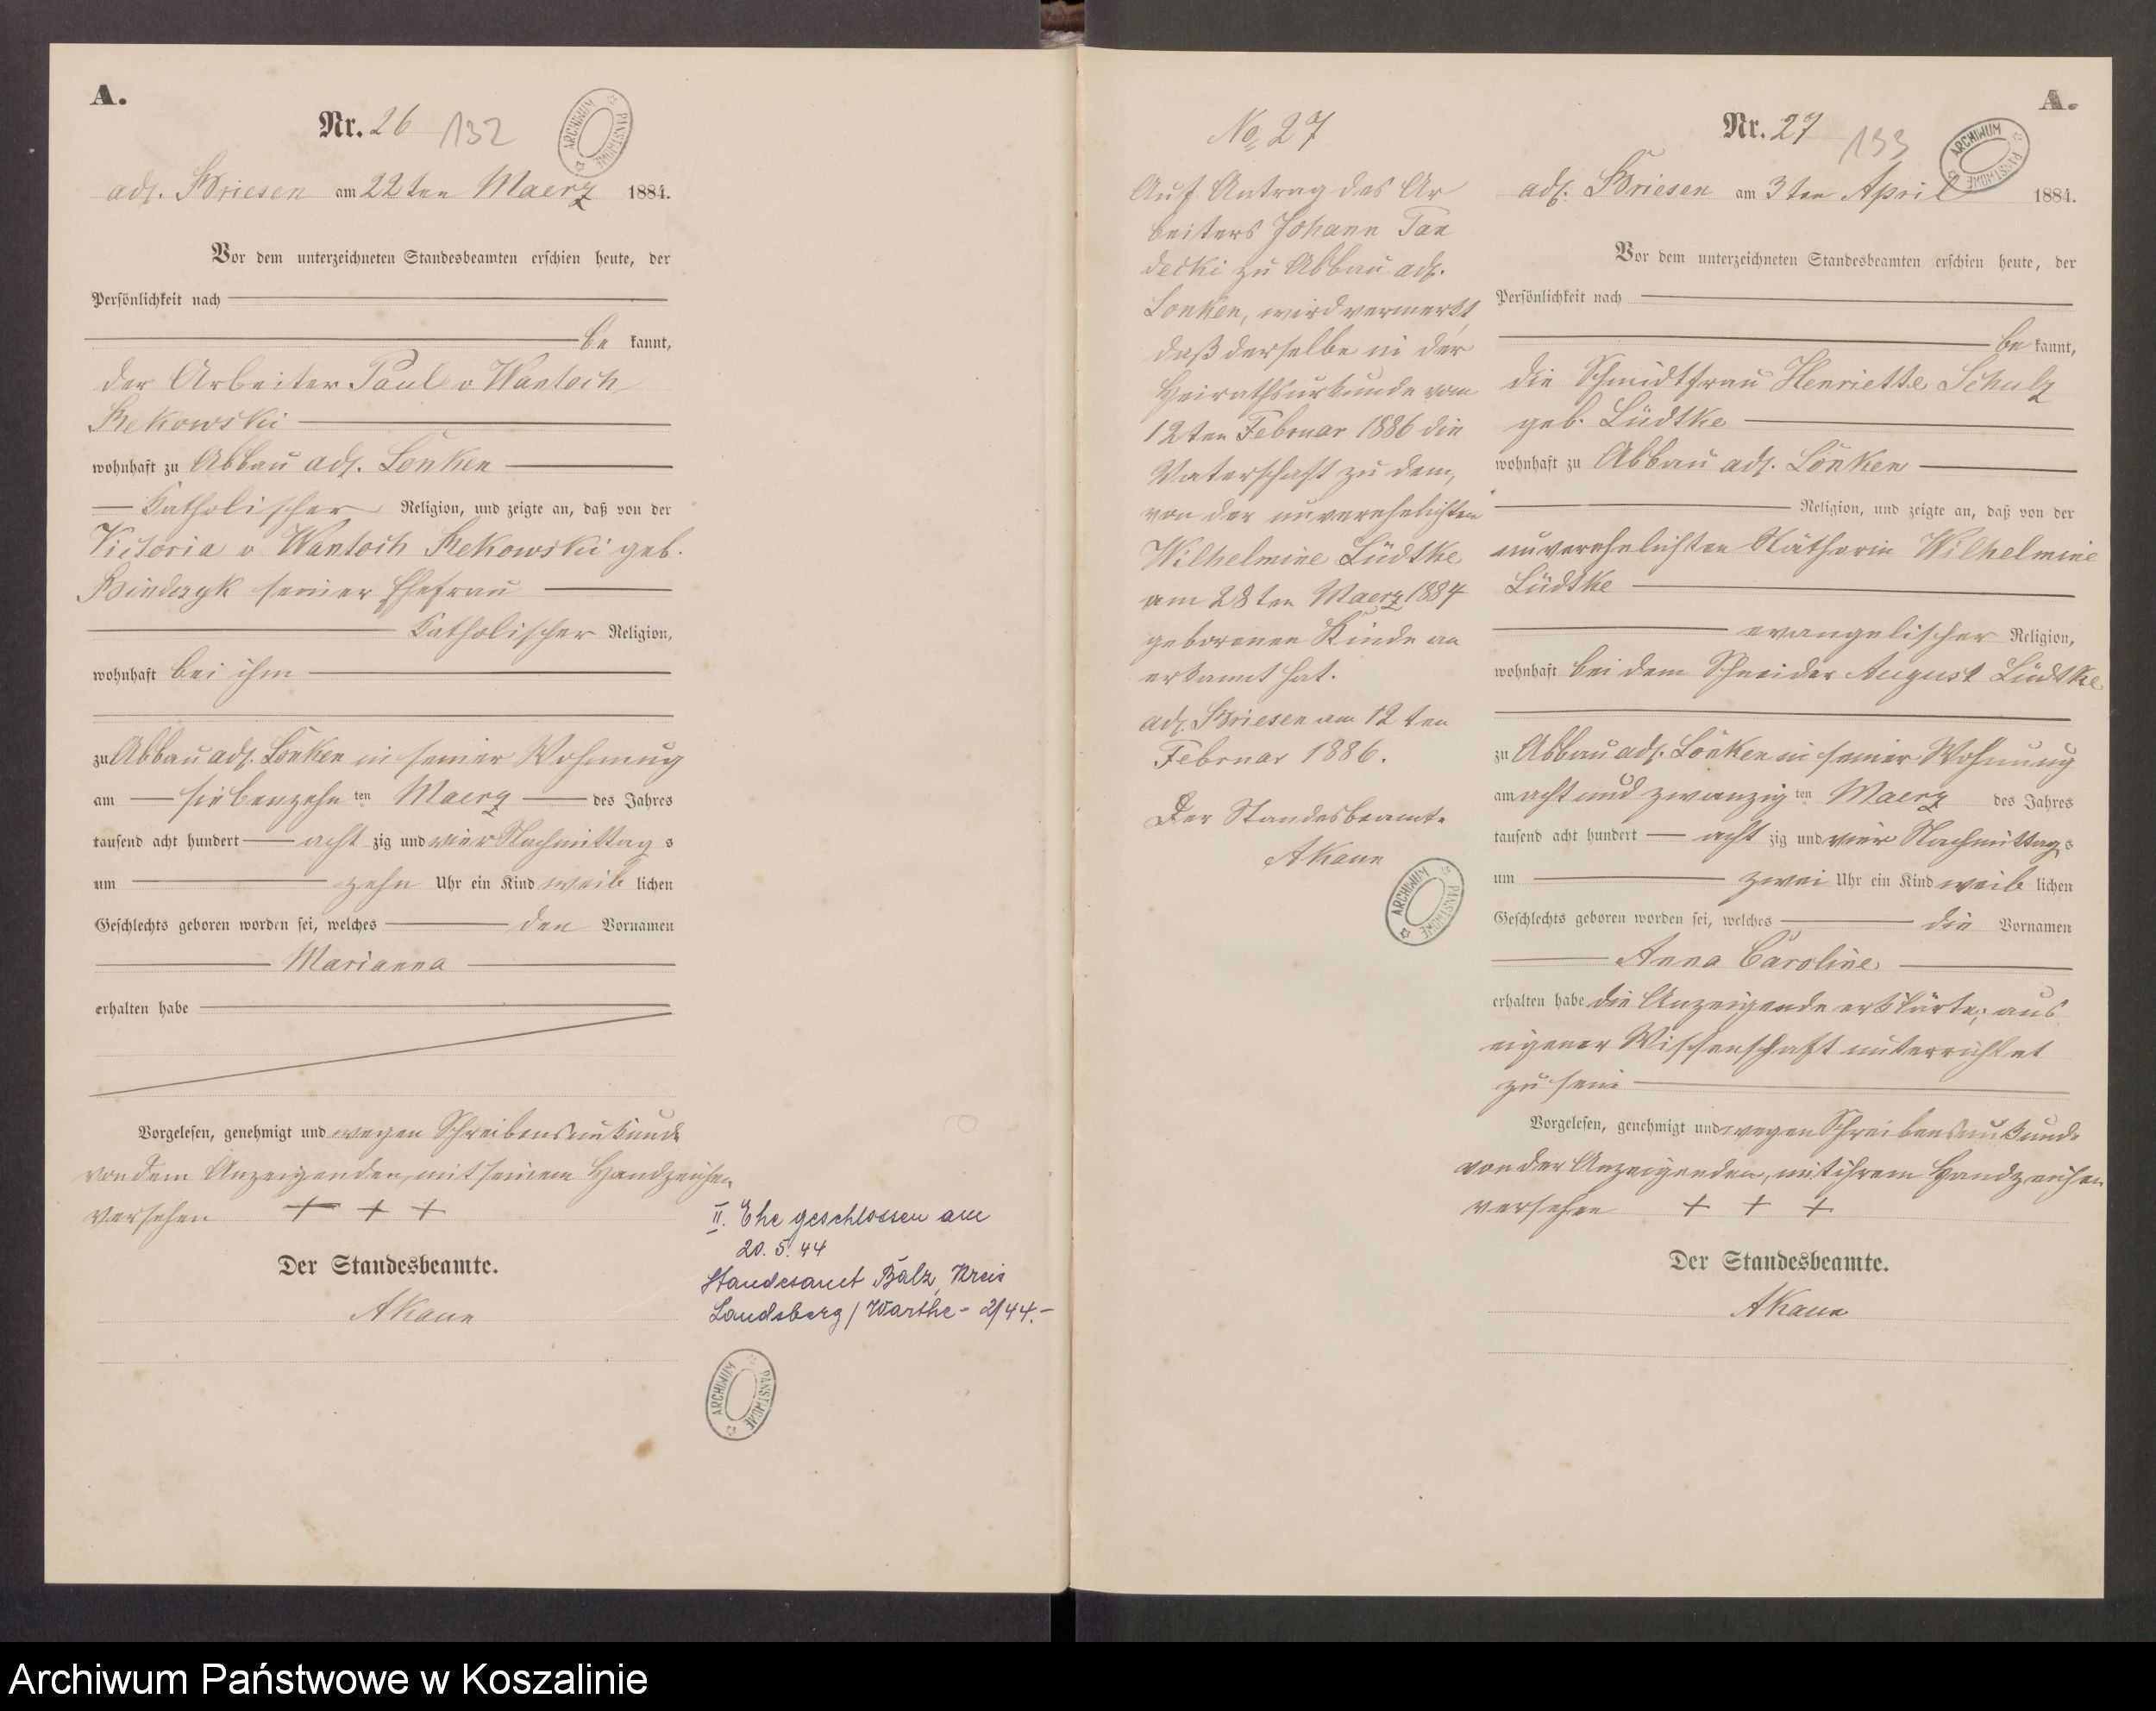 A.
Nr. 26 132
ARCHIWUM PAŃSTWOWE
adl. Briesen am 22ten Maerz 1884.
Vor dem unterzeichneten Standesbeamten erschien heute, der
Persönlichkeit nach
be kannt,
der Arbeiter Paul v Wantoch
Rekowski
wohnhaft zu Abbau adl. Lonken
Katholischer Religion, und zeigte an, daß von der
Victoria v Wantoch Rekowski geb.
seiner Ehefrau
Katholischer Religion,
wohnhaft bei ihm
zu Abbau adl. Lonken in seiner Wohnung
am siebenzehn ten Maerz des Jahres
tausend acht hundert acht zig und vier Nachmittag s
um zehn Uhr ein Kind weib lichen
Geschlechts geboren worden sei, welches den Vornamen
Marianna
erhalten habe
Vorgelesen, genehmigt und wegen Schreibensunkunde
von dem Anzeigenden, mit seinem Handzeichen
versehen + + +
Der Standesbeamte.
AKaun
II. Ehe geschlossen am
20. 5. 44
Standesamt Balz, Kreis
Landsberg / Warthe - 2/44.-
ARCHIWUM PAŃSTWOWE
No 27
Auf Antrag des Ar
beiters Johann Tan
decki zu Abbau adl.
Lonken, wird vermerkt,
daß derselbe in der
Heirathsurkunde vom
12ten Februar 1886 die
Vaterschaft zu dem,
von der unverehelichten
Wilhelmine Lüdtke
am 28ten Maerz 1884
geborenen Kinde an
erkannt hat.
adl. Briesen am 12ten
Februar 1886.
Der Standesbeamte
AKaun
ARCHIWUM PAŃSTWOWE
A.
Nr. 27 133
ARCHIWUM PAŃSTWOWE
adl. Briesen am 3ten April 1884.
Vor dem unterzeichneten Standesbeamten erschien heute, der
Persönlichkeit nach
be kannt,
die Schmidtfrau Henriette Schulz
geb. Lüdtke
wohnhaft zu Abbau adl. Lonken
Religion, und zeigte an, daß von der
unverehelichten Nätherin Wilhelmine
Lüdtke
evangelischer Religion,
wohnhaft bei dem Schneider August Lüdtke
zu Abbau adl. Lonken in seiner Wohnung
am acht und zwanzig ten Maerz des Jahres
tausend acht hundert acht zig und vier Nachmittag s
um zwei Uhr ein Kind weib lichen
Geschlechts geboren worden sei, welches die Vornamen
Anna Caroline
erhalten habe die Anzeigende erklärte, aus
eigener Wissenschaft unterrichtet
zu sein
Vorgelesen, genehmigt und wegen Schreibensunkunde
von der Anzeigenden, mit ihrem Handzeichen
versehen + + +
Der Standesbeamte.
AKaun
Archiwum Państwowe w Koszalinie